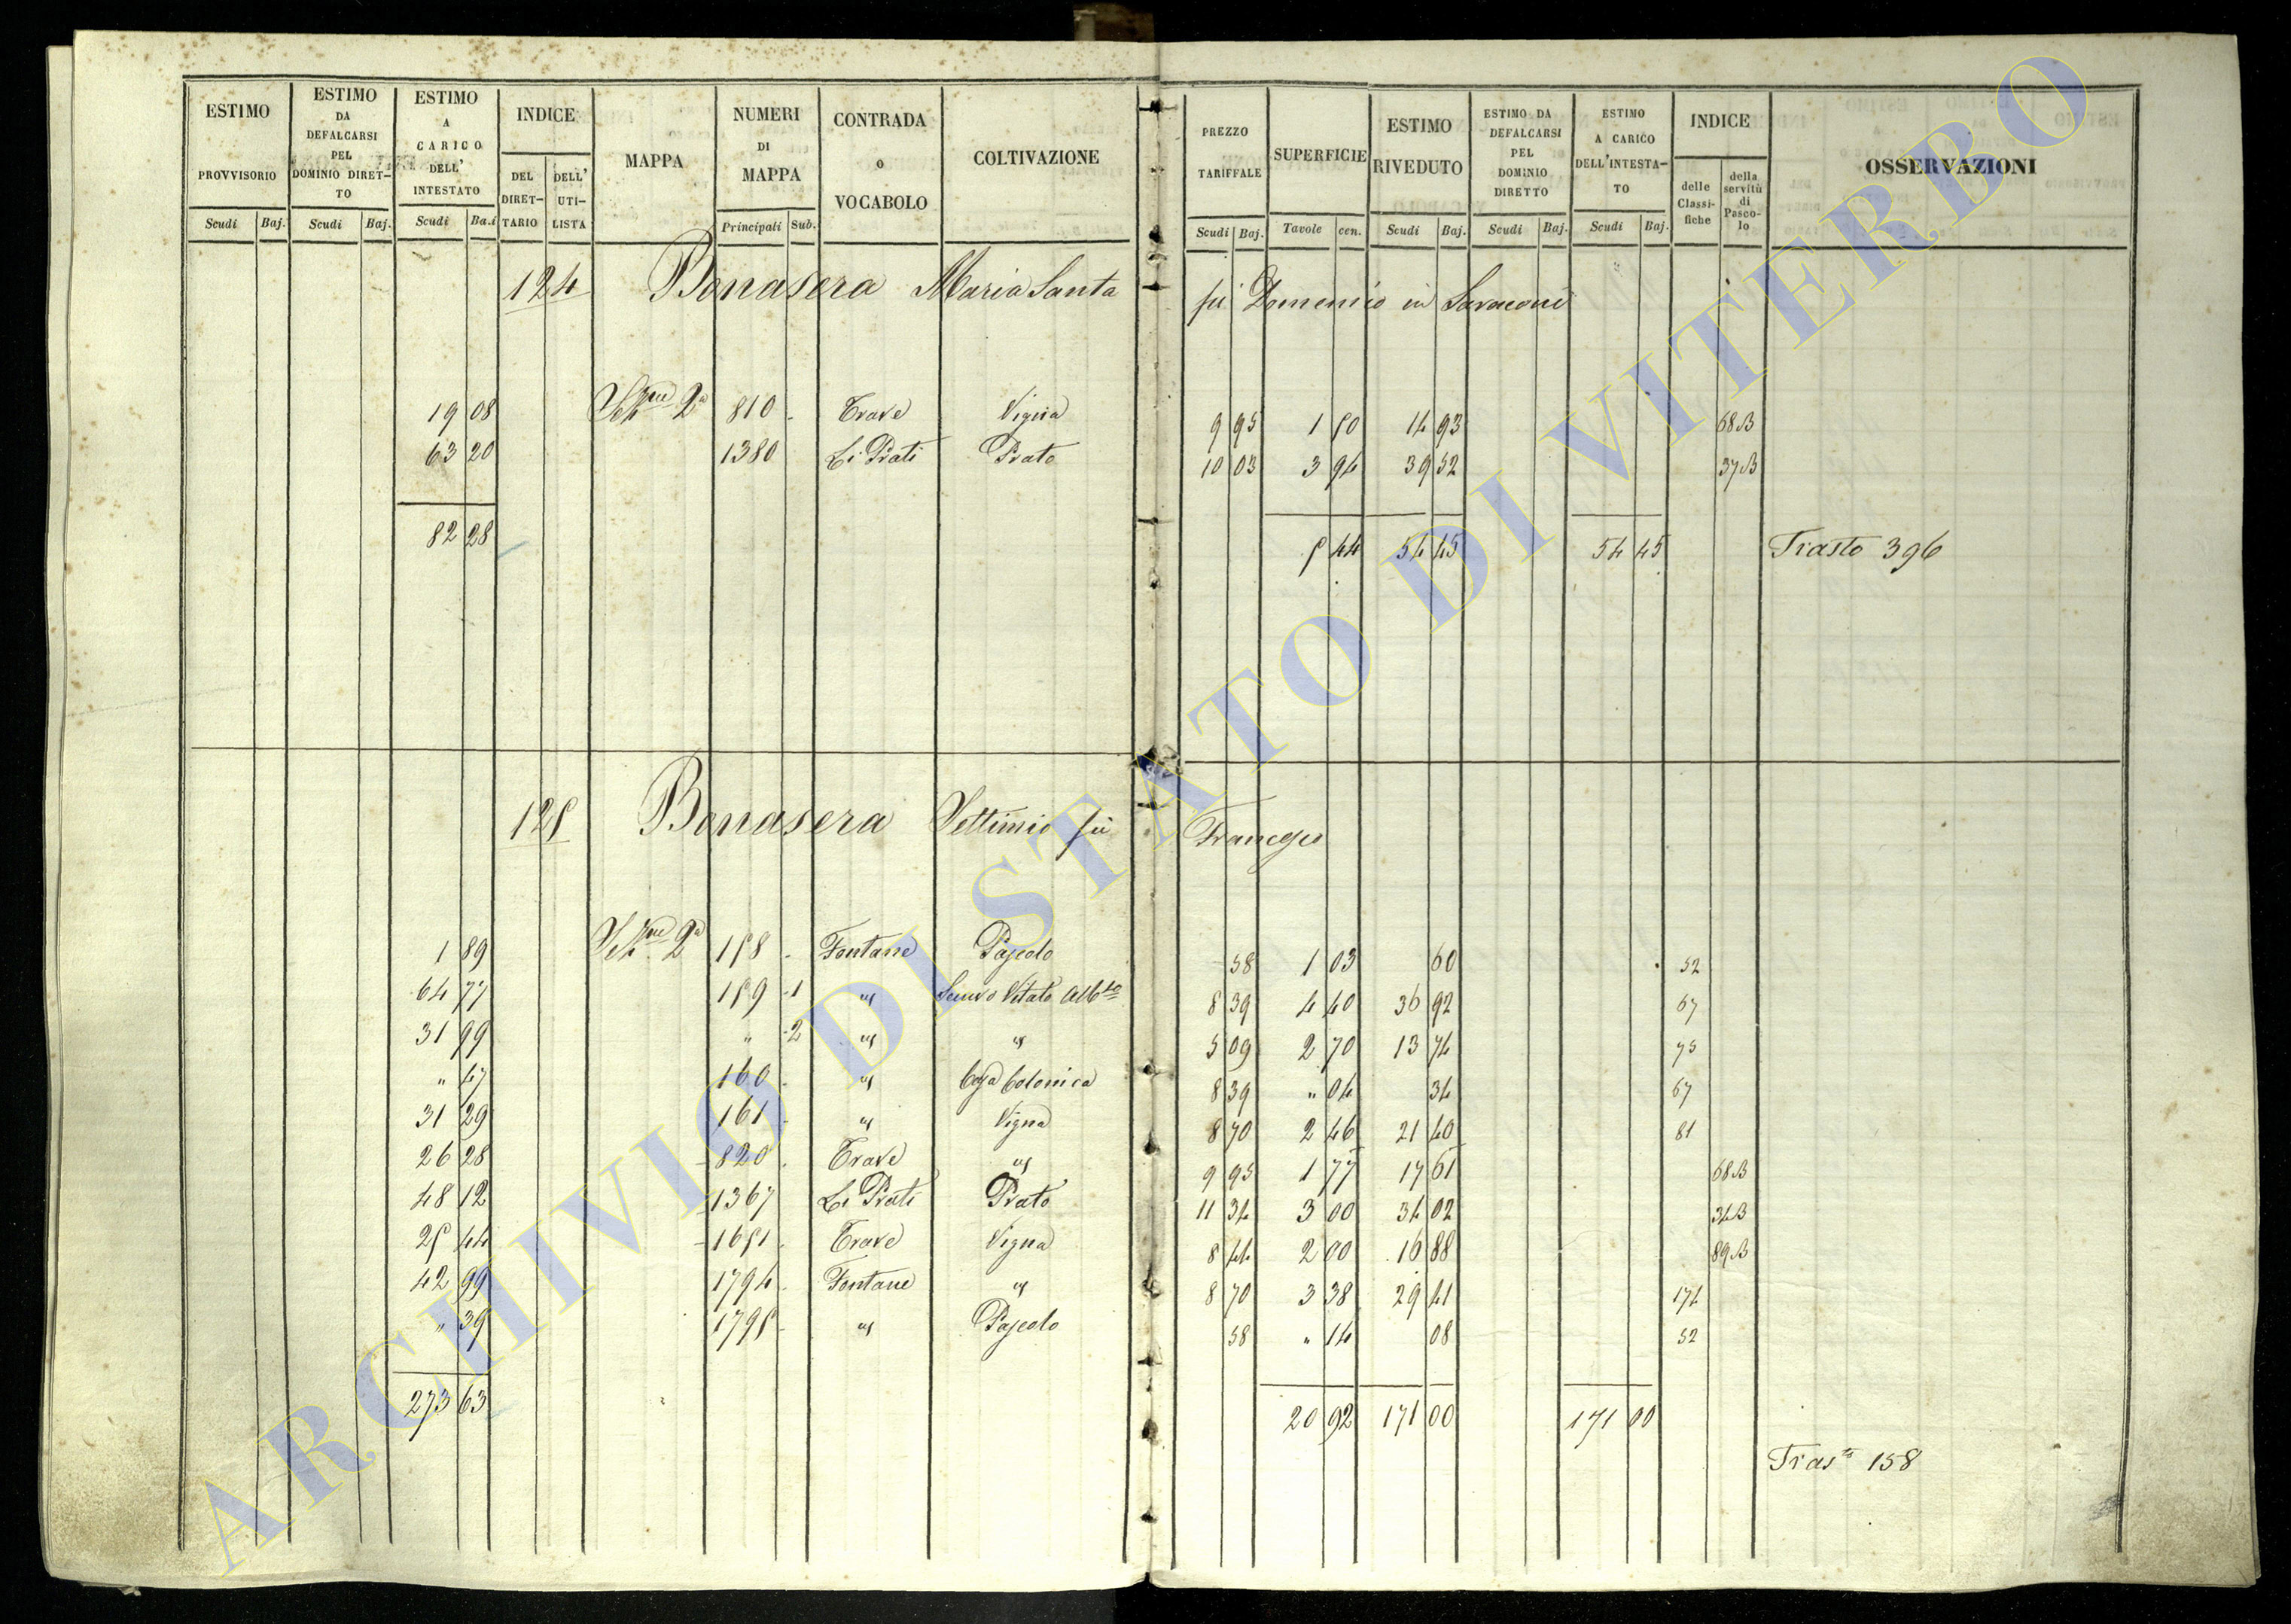 ESTIMO PROVVISORIO Scudi Baj.
ESTIMO DA DEFALCARSI PEL DOMINIO DIRETTO Scudi Baj.
ESTIMO A CARICO DELL' INTESTATO Scudi Ba.i
INDICE DEL DIRET-TARIO DELL' UTI-LISTA
MAPPA
NUMERI DI MAPPA Principali Sub.
CONTRADA o VOCABOLO
COLTIVAZIONE
PREZZO TARIFFALE Scudi Baj.
SUPERFICIE Tavole cen.
ESTIMO RIVEDUTO Scudi Baj.
ESTIMO DA DEFALCARSI PEL DOMINIO DIRETTO Scudi Baj.
ESTIMO A CARICO DELL'INTESTA-TO Scudi Baj.
INDICE delle Classi-fiche della servitù di Pasco-lo
OSSERVAZIONI
124 Bonasera Maria Santa fù Domenico in Saraconi
19 08 Sezne 2a 810 - Trave Vigna 9 95 1 50 14 93 68B
63 20 1380 Li Prati Prato 10 03 3 94 39 52 37B
82 28 5 44 54 45 54 45 Trasto 396
125 Bonasera Settimio fù Francesco
1 89 Sezne 2a 158 - Fontane Pascolo 58 1 03 60 52
64 77 159 -1 " Semvo Vitato Albto 8 39 4 40 36 92 67
31 99 " -2 " " 5 09 2 70 13 74 75
" 47 160 - " Casa Colonica 8 39 " 04 34 67
31 29 161 - " Vigna 8 70 2 46 21 40 81
26 28 820 - Trave " 9 95 1 77 17 61 68B
48 12 1367 Li Prati Prato 11 34 3 00 34 02 34B
25 44 1651 - Trave Vigna 8 44 2 00 16 88 89B
42 99 1794 - Fontane " 8 70 3 38 29 41 174
" 39 1795 - " Pascolo 58 " 14 08 52
273 63 20 92 171 00 171 00
Trasto 158
ARCHIVIO DI STATO DI VITERBO